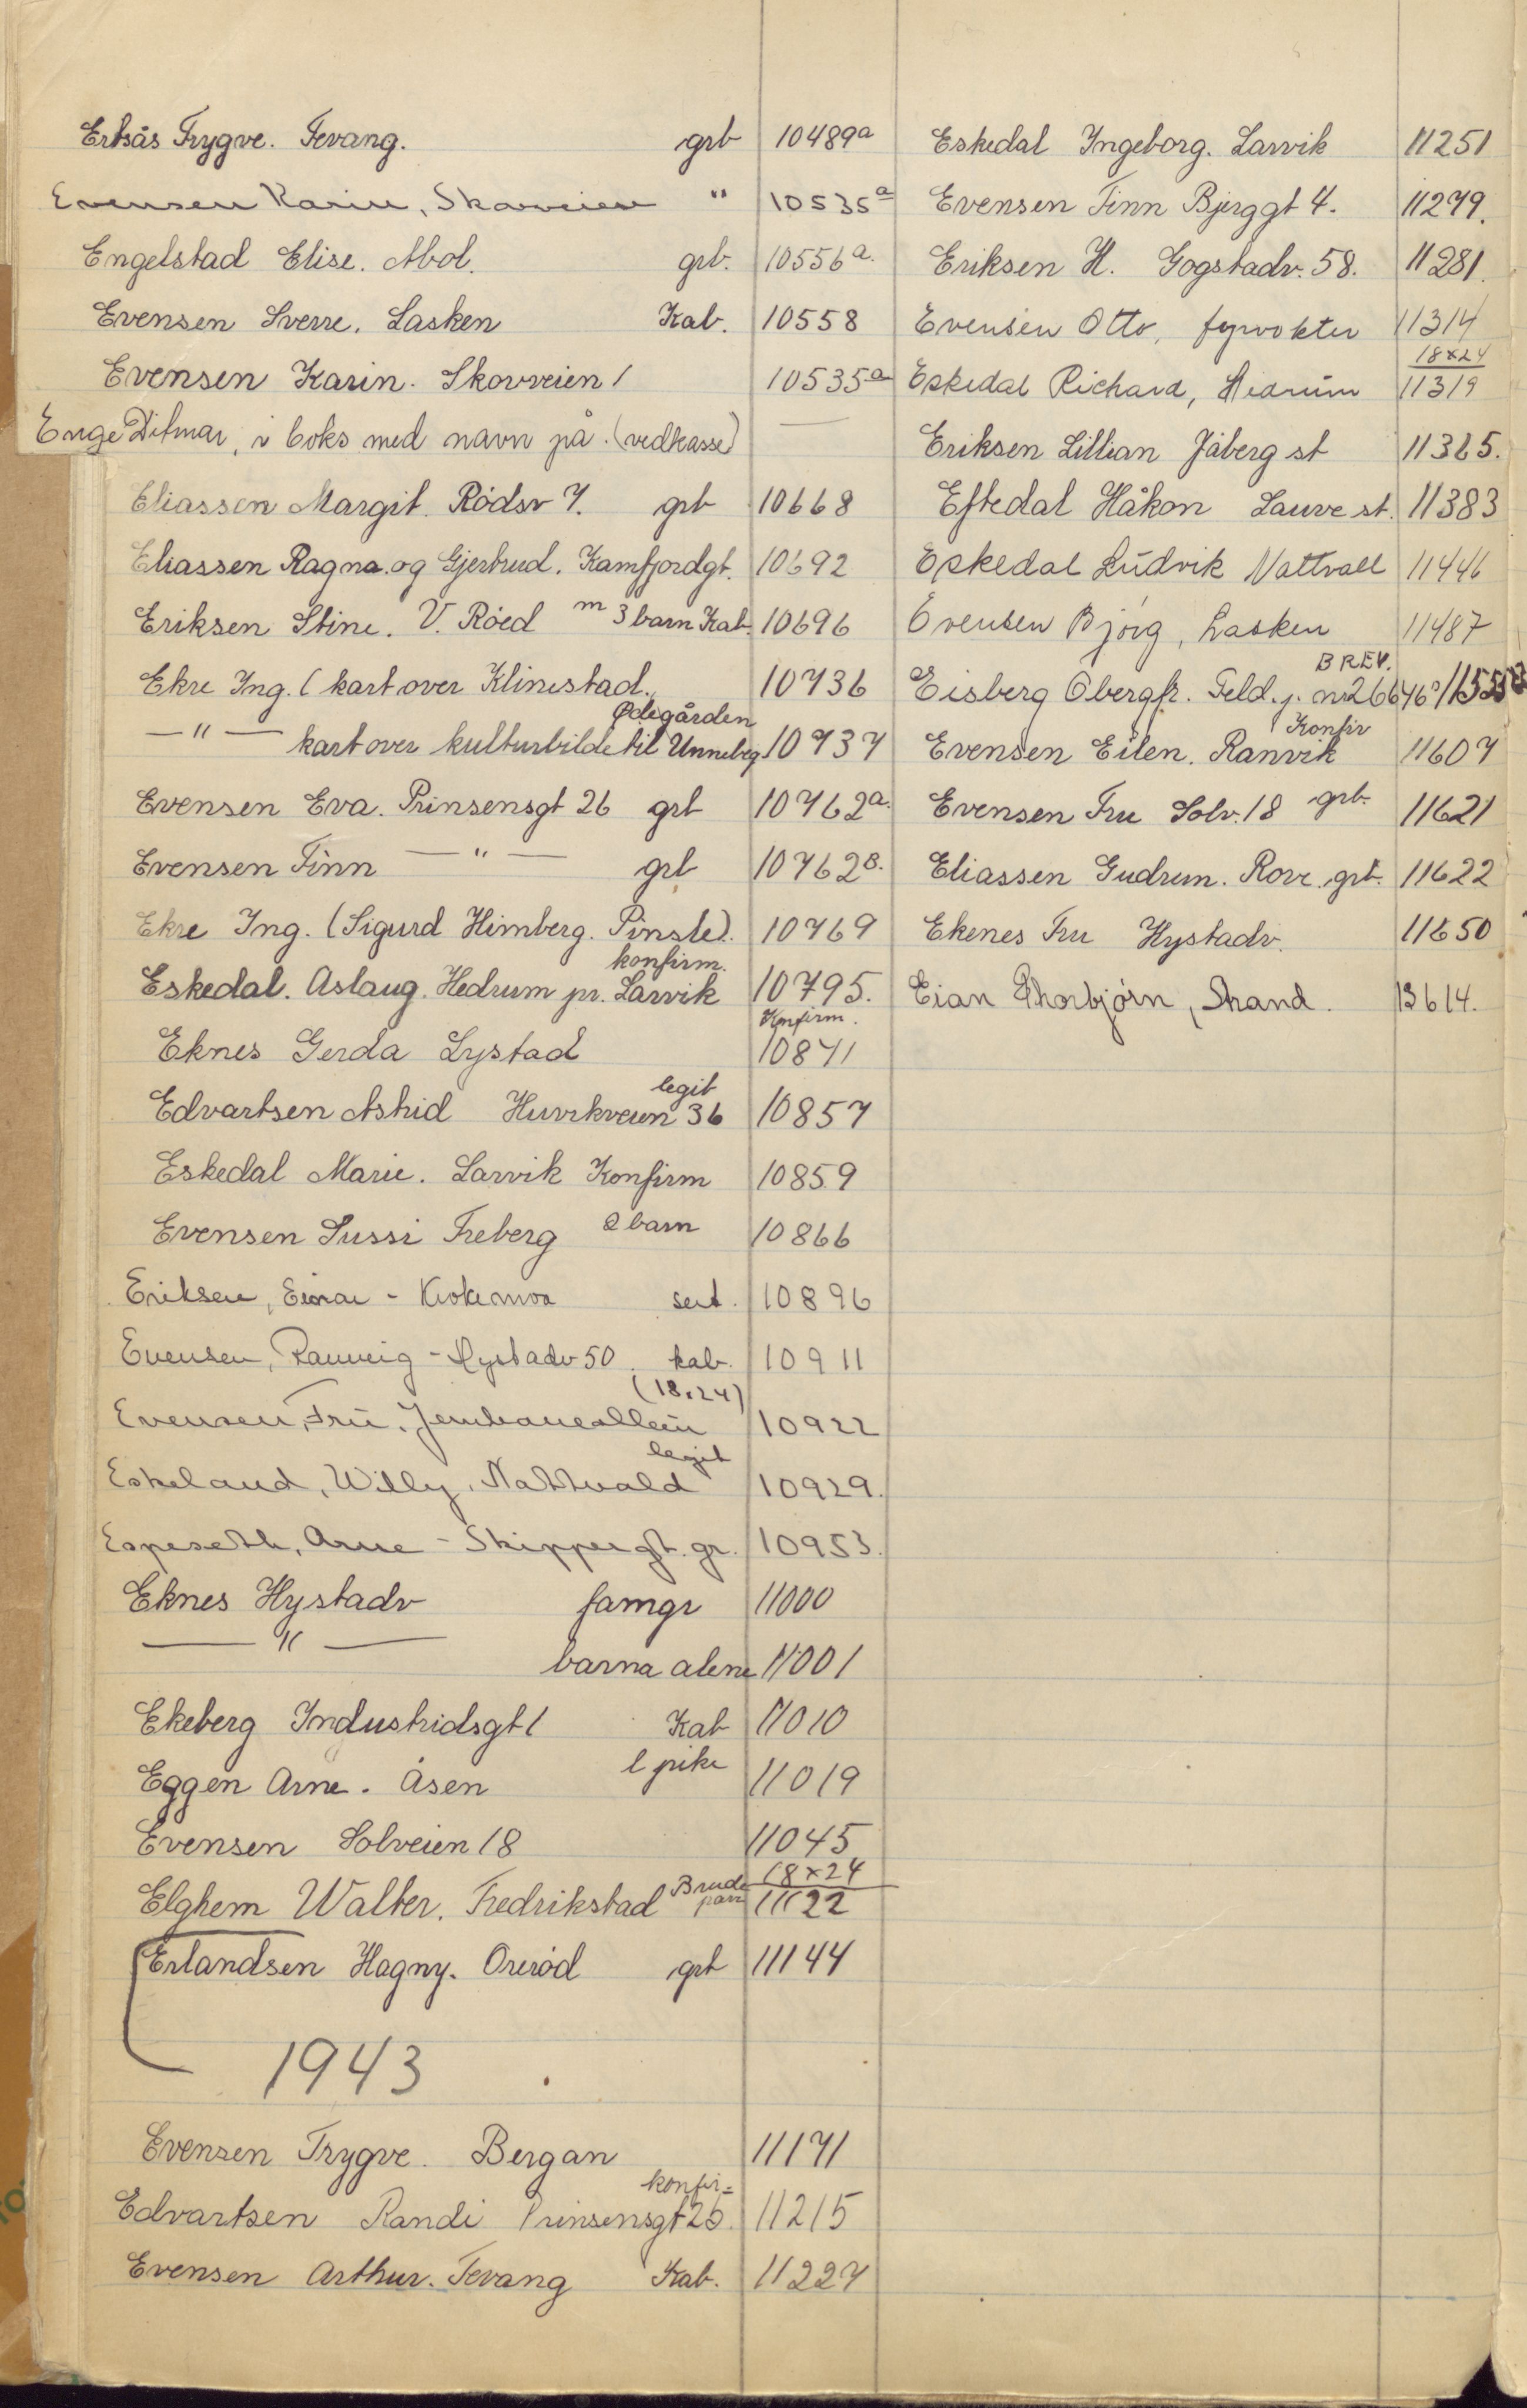 Ertsås Trygve. Tevang. grb 10489a
Evensen Karin, Skovveien " 10535a
Engelstad Elise. Mol. grb. 10556a.
Evensen Sverre. Lasken Kab. 10558
Evensen Karin. Skovveien 1 10535a
Enge Ditmar, i boks med navn på. (vedkasse) —
Eliassen Margit. Rødsv 7. grb 10668
Eliassen Ragna. og Gjertrud. Kamfjordgt. 10692
Eriksen Stine. V. Røed m 3 barn Kab. 10696
Ekre Ing. ( kart over Klinestad. 10736
Ødegården
— " — kart over kulturbilde til Unneberg 10737
Evensen Eva. Prinsensgt 26 grb 10762a.
Evensen Finn — " — grb 10762B.
Ekre Ing. (Sigurd Himberg. Pinsle). 10769
konfirm.
Eskedal. Aslaug. Hedrum pr. Larvik 10795.
Konfirm.
Eknes Gerda Lystad 10871
legit
Edvartsen Astrid Huvikveien 36 10857
Eskedal Marie. Larvik Konfirm 10859
Evensen Sussi Freberg 2 barn 10866
Eriksen, Einar - Krokemoa 10896
Evensen, Rannveig - Hystadv 50. kab. 10911
(18x24)
Evensen, Fru. Jernbanealleen 10922
legit
Eskeland, Willy. Nattvald 10929.
Espeseth, Arne - Skippergt. gr. 10953.
Eknes Hystadv famgr 11000
— " — barna alene 11001
Ekeberg Industridsgt 1 Kab 11010
Eggen Arne. Åsen l pike 11019
Evensen Solveien 18 11045
Elghem Walter. Fredrikstad Brudepar 18x24 11122
Erlandsen Hagny. Orerød grb 11144
1943
Evensen Trygve. Bergan 11171
konfir=
Edvartsen Randi Prinsensgt 26. 11215
Evensen Arthur. Tevang Kab. 11227
Eskedal Ingeborg. Larvik 11251
Evensen Finn Bjerggt 4. 11279.
Eriksen H. Gogstadv. 58. 11281.
Evensen Otto, fyrvokter 11314
18x24
Eskedal Richard, Hedrum 11319
Eriksen Lillian Jåberg st 11365.
Eftedal Håkon Lauve st. 11383
Eskedal Ludvik Nattvall 11446
Evensen Bjørg, Lasken 11487
BREV.
Eisberg Obergfr. Feld. p. nr 26646
Konfir
Evensen Eilen. Ranvik 11607
Evensen Fru Solv. 18 grb. 11621
Eliassen Gudrun. Rove. grb. 11622
Ekenes Fru Hystadv. 11650
Eian Thorbjørn, Strand. 13614.